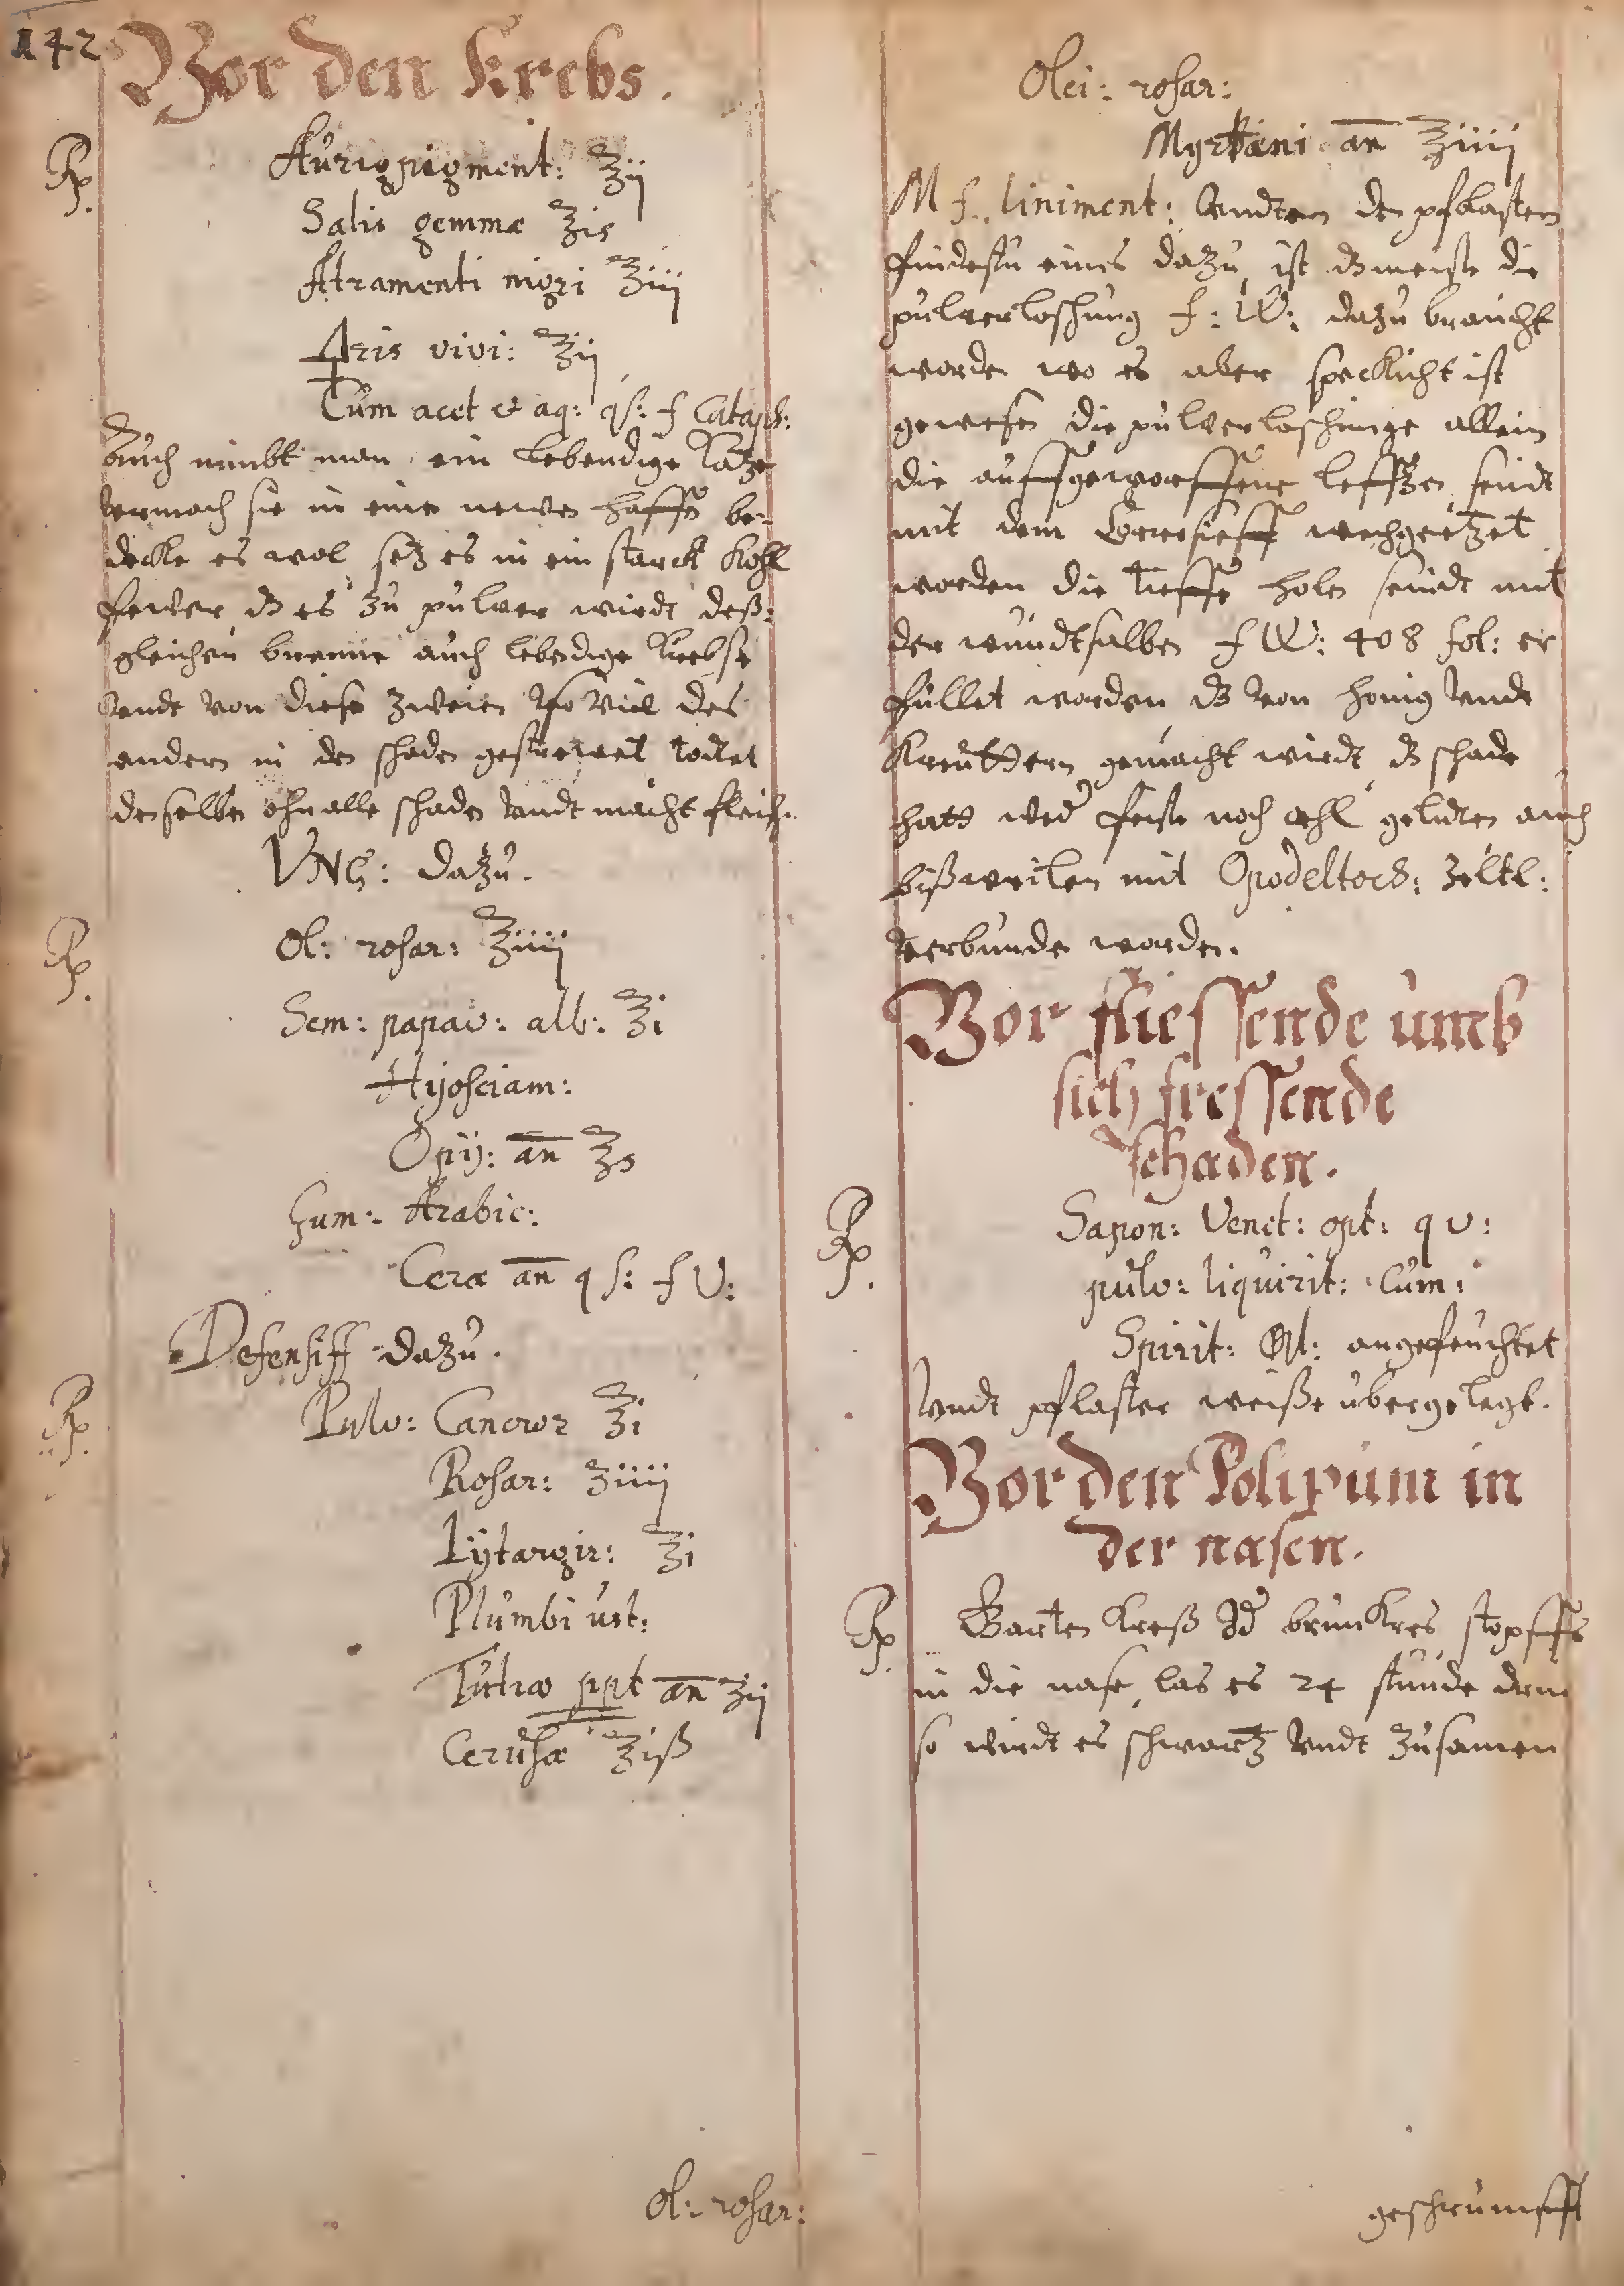 142
Vor den Krebs.
Rp. Auripigment: ʒij
Salis gemmæ ʒis
Atramenti nigri ʒiij
Æris vivi: ʒij
Cum acet et aq: qs: f Catapl:
Auch nimbt man ein lebendige Katze
vermach sie in eine newen haffen be-
decke es wol setz es in ein starck Kohl
fewer dz es zu pulver wirdt deß-
gleichen brenne auch lebendige Krebse
vndt von diesen zweien so viel des
andern in den schaden gestrewet todtet
denselben ohn alle schaden vndt macht fleisch.
VNG: dazu.
Rp. Ol: rosar: ℥iiij
Sem: papav: alb: ℥i
Hijosciam:
Opij: an ℥s
Gum: Arabic:
Ceræ an qs: f V:
Defensiff dazu.
Rp. Pulv: Cancror ℥i
Rosar: ʒiiij
Lÿtargir: ℥i
Plumbi ust:
Tutiæ ppt an ʒij
Cerusæ ʒiß
Ol: rosar:
Olei: rosar:
Myrtini an ℥iiij
M f. liniment: vndter den pflastern
findestu eines dazu, ist dz meiste die
pulverloschung f: W: dazu braucht
worden wo es aber specklicht ist
gewesen die pulverloschunge allein
die auffgeworffene lefftzen seindt
mit dem Corrosieff wechgeetzet
worden die tieffe holen seindt mit
der wundtsalben f W: 408 fol: er
füllet worden dz von honig vndt
Kreuttern gemacht wirdt dz schade
hatt wed feiste noch oehl gelidten auch
bißweilen mit Opodeltoch: zeltl:
verbunden worden.
Vor fliessende umb
sich fressende
schaden.
Rp. Sapon: Venet: opt: q v:
pulv: liquirit: Cum:
Spirit: angefeuchtet
vndt pflaster weiße ubergelegt.
Vor den Polipum in
der nasen.
Rp. Garten Kreß od brunKres stopffs
in die nase, las es 24 stunde drin
so wirdt es schwartz vndt zusamen
geschrumpfft